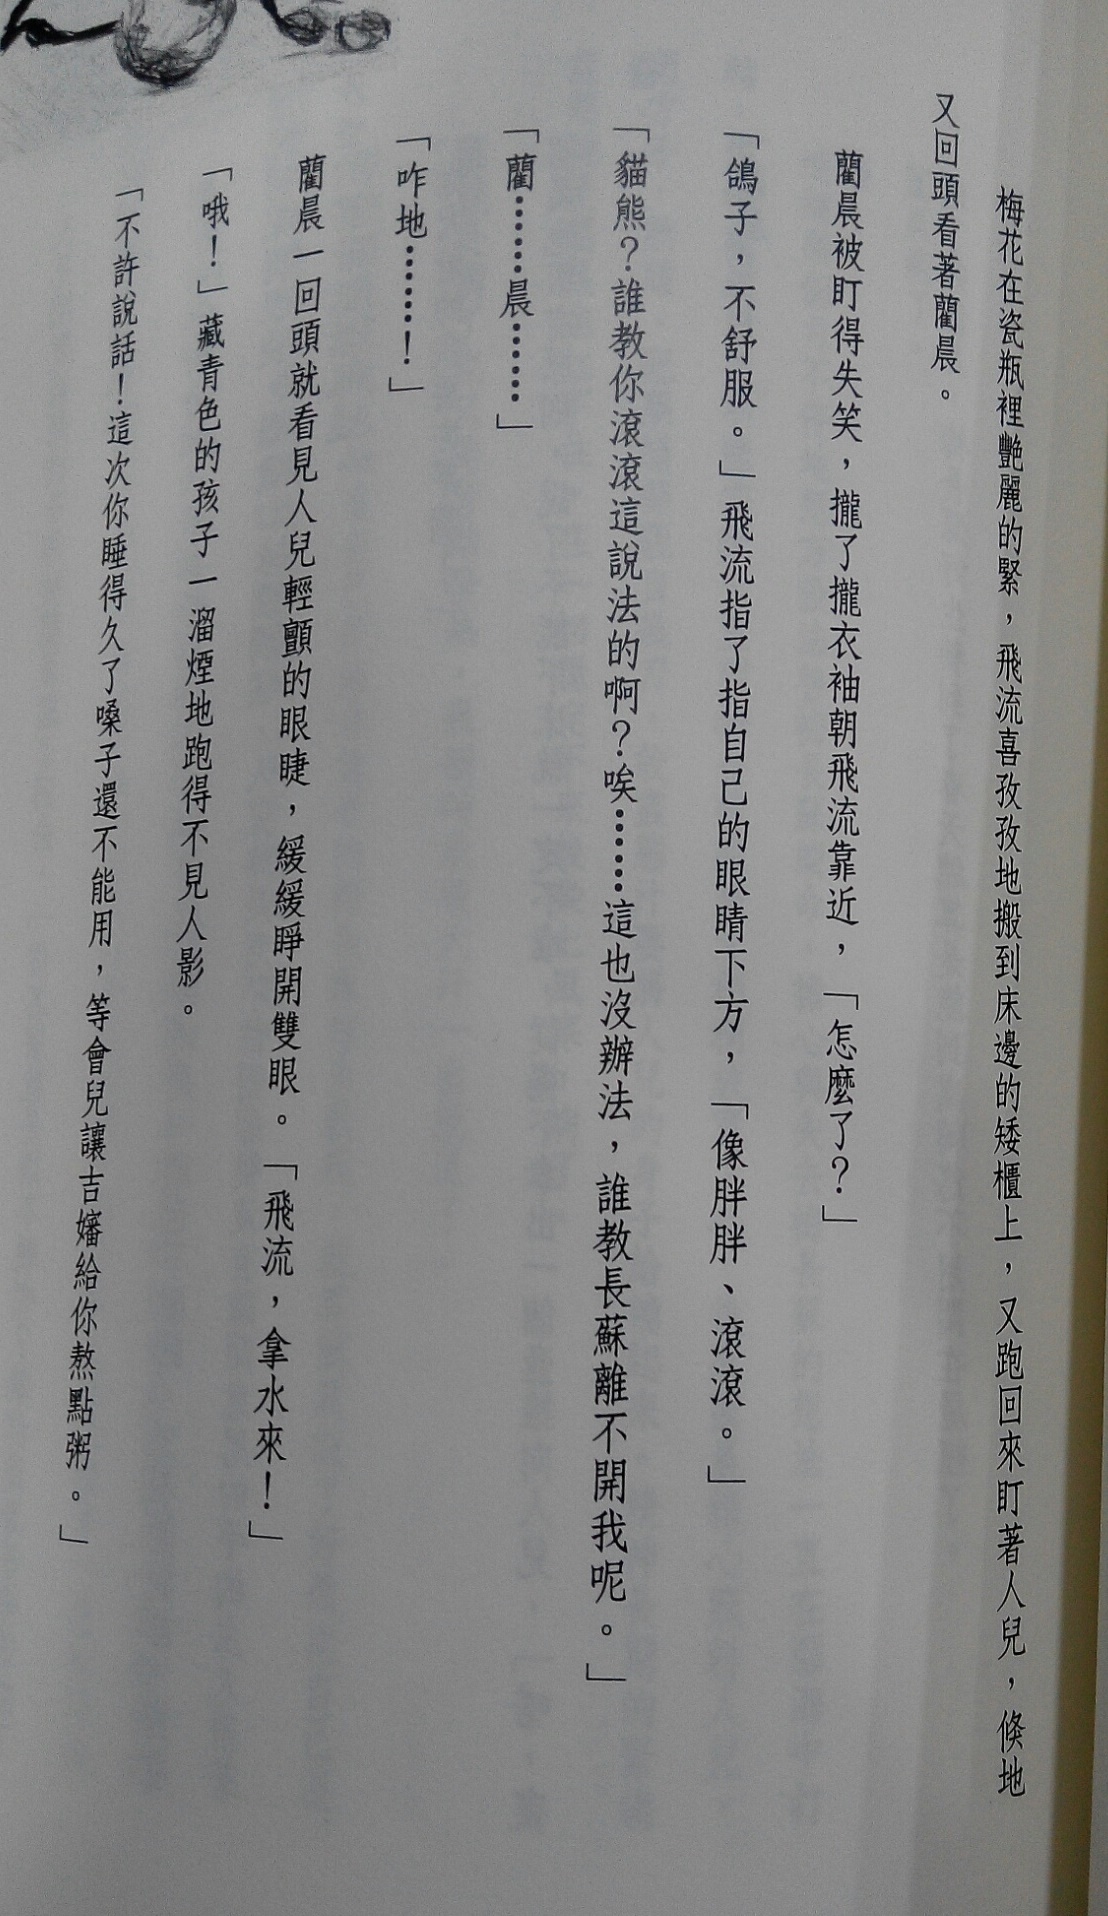 梅花在瓷瓶裡艷麗的緊，飛流喜孜孜地搬到床邊的矮櫃上，又跑回來盯著人兒，倏地
又回頭看著藺晨。
藺晨被盯得失笑，攏了攏衣袖朝飛流靠近，「怎麼了？」
「鴿子，不舒服。」飛流指了指自己的眼睛下方，「像胖胖、滾滾。」
「貓熊？誰教你滾滾這說法的啊？唉………這也沒辦法，誰教長蘇離不開我呢。」
「藺………晨………」
「咋地………！」
藺晨一回頭就看見人兒輕顫的眼睫，緩緩睜開雙眼。「飛流，拿水來！」
「哦！」藏青色的孩子一溜煙地跑得不見人影。
「不許說話！這次你睡得久了嗓子還不能用，等會兒讓吉嬸給你熬點粥。」